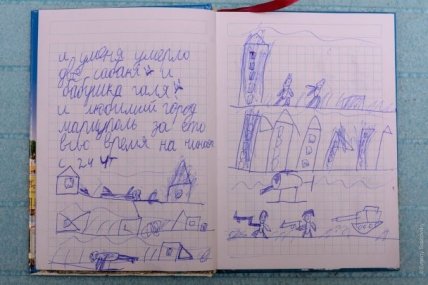 и умоня умерло
две сабаки и
бабушка галя
и любимий город
мариуполь за ето
все время на чиная
с 24